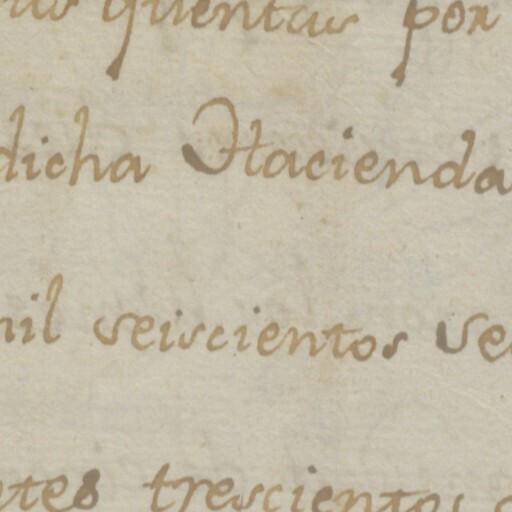 quentas por
dicha Hacienda
mil seiscientos se
trescientos